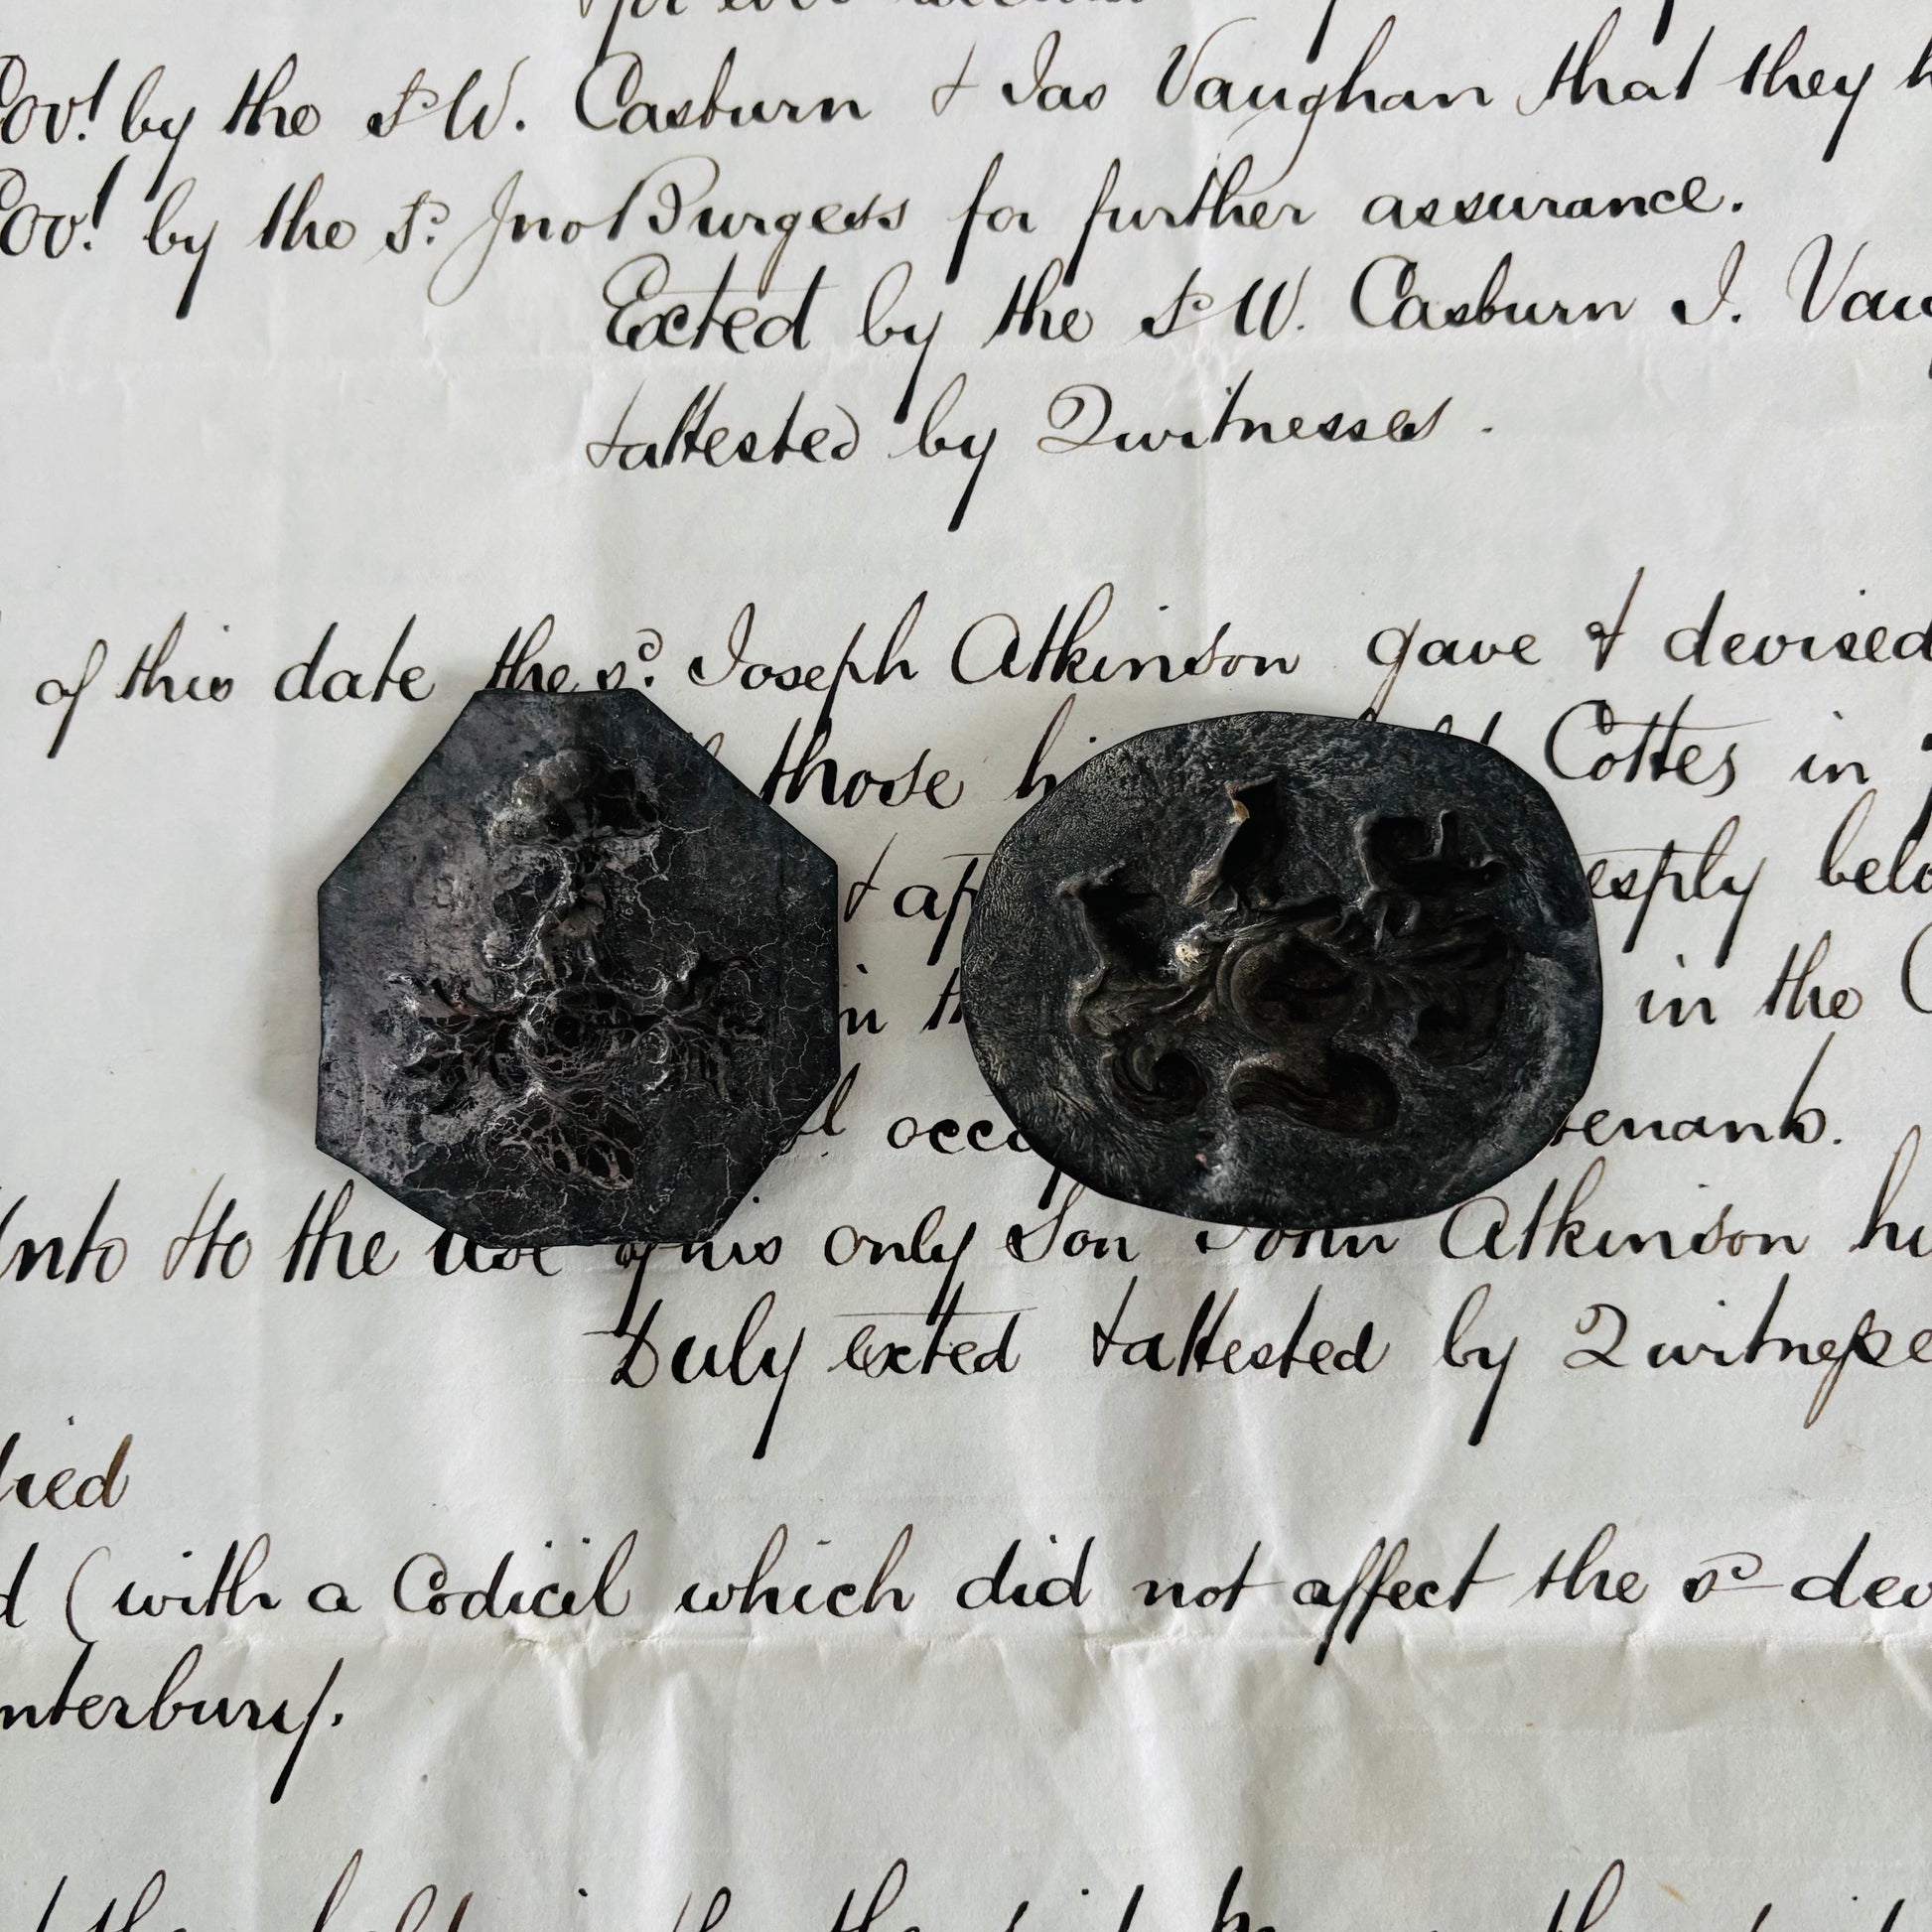 for ever
Covt by the sd W. Casburn & Jas Vaughan that they
Covt by the sd Jno Burgess for further assurance.
Exted by the sd W. Casburn J.
& attested by 2 witnesses.
of this date the sd Joseph Atkinson gave & devised
those Cottes in
&
esply
in the
Unto & to the use of his only Son John Atkinson
Duly exted & attested by 2
died
(with a Codicil which did not affect the sd
nterbury.